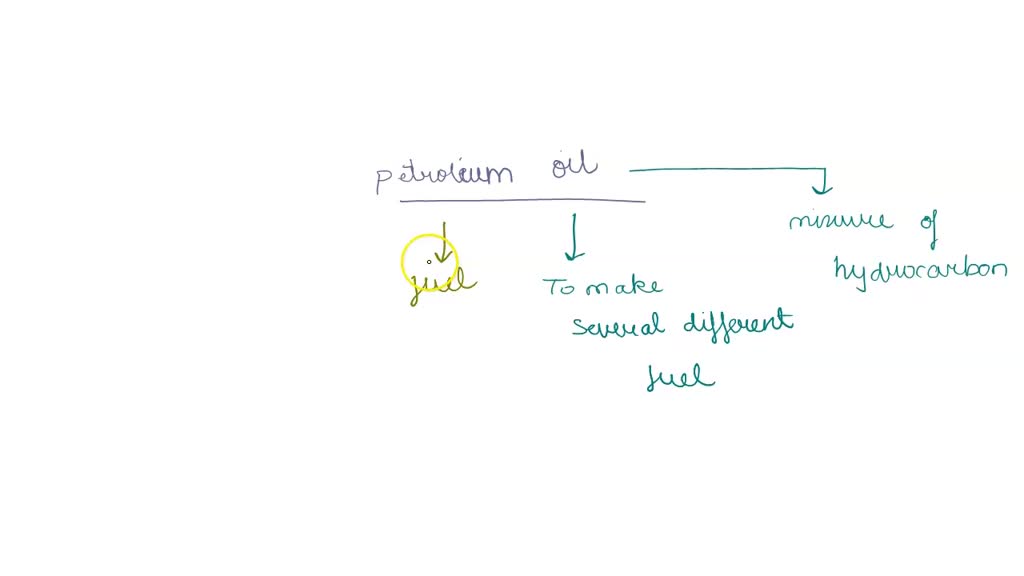 petroleum oil
mixure of
hydrocarbon
fuel
To make
several different
fuel